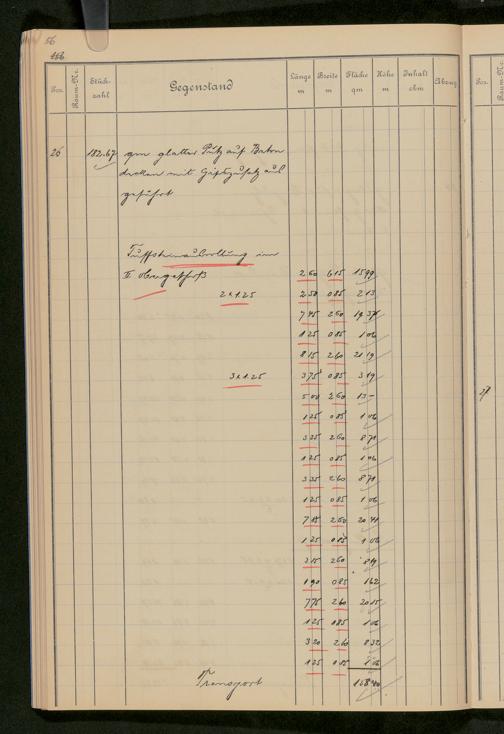 56
156
Pos. Raum-Nr. Stückzahl Gegenstand Länge m Breite m Fläche qm Höhe m Inhalt cbm Abzug Pos. Raum-Nr.
26 182.67 qm glatter Putz auf Beton
decken mit Gipszusatz aus
geführt
Tuffsteinausrollung im
II Obergeschoß 2 60 6 15 15 99
2x1.25 2 50 0 85 2 13
7 45 2 60 19 37
1 25 0 85 1 06
8 15 2 60 21 19
3x1.25 3 75 0 85 3 19
5 00 2 60 13 -
1 25 0 85 1 06
3 35 2 60 8 71
1 25 0 85 1 06
3 35 2 60 8 71
1 25 0 85 1 06
7 85 2 60 20 41
1 25 0 85 1 06
3 15 2 60 8 19
1 90 0 85 1 62
7 75 2 60 20 15
1 25 0 85 1 06
3 20 2 60 8 32
1 25 0 85 1 06
Transport
27